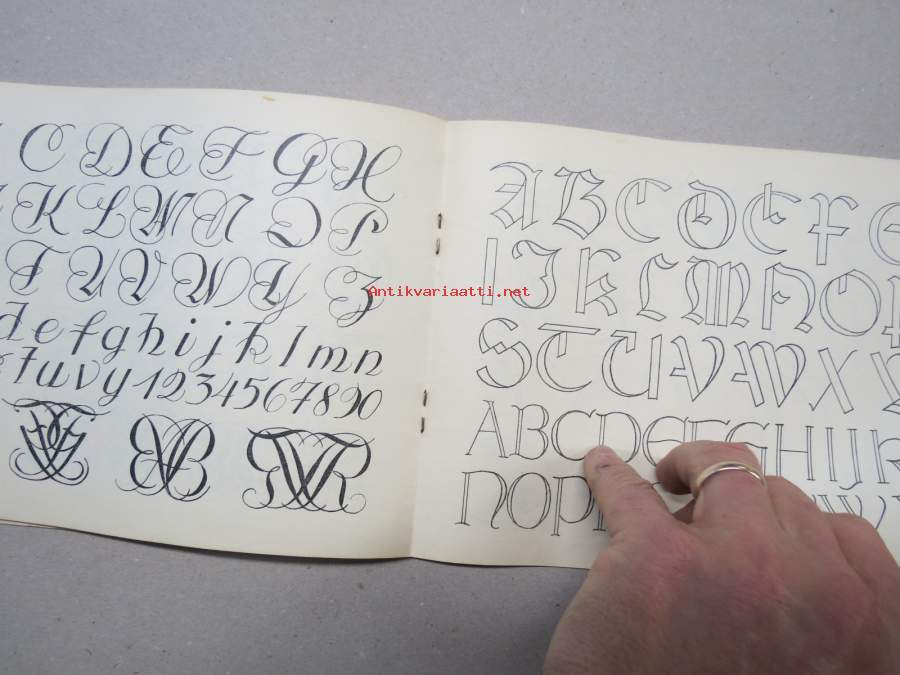 C D E F G H
K L M N O P
T U V W Y Z
d e f g h i j k l m n
t u v y 1234567890
A B C D E F G
I J K L M N O P
S T U V W X Y
ABCDEFGHIJK
NOP
Antikvariaatti.net